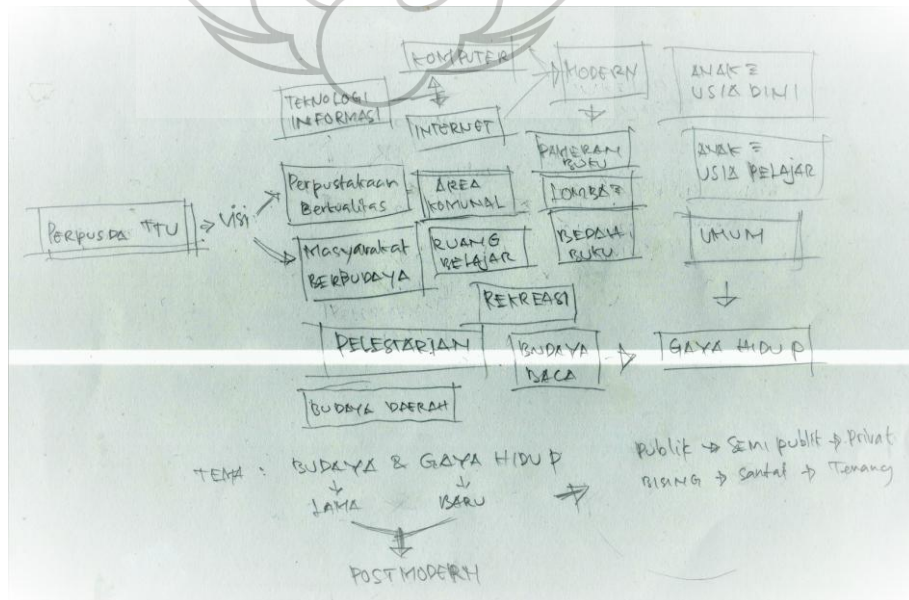 KOMPUTER
MODERN
ANAK2
USIA DINI
TEKNOLOGI
INFORMASI
INTERNET
PAMERAN
BUKU
ANAK2
USIA PELAJAR
Perpustakaan
Berkualitas
AREA
KOMUNAL
LOMBA2
PERPUSDA TTU
Visi
Masyarakat
BERBUDAYA
RUANG
BELAJAR
BEDAH
BUKU
UMUM
REKREASI
PELESTARIAN
BUDAYA
BACA
GAYA HIDUP
BUDAYA DAERAH
TEMA : BUDAYA & GAYA HIDUP
LAMA
BARU
POSTMODERN
Publik → Semi publik → Privat
BISING → Santai → Tenang